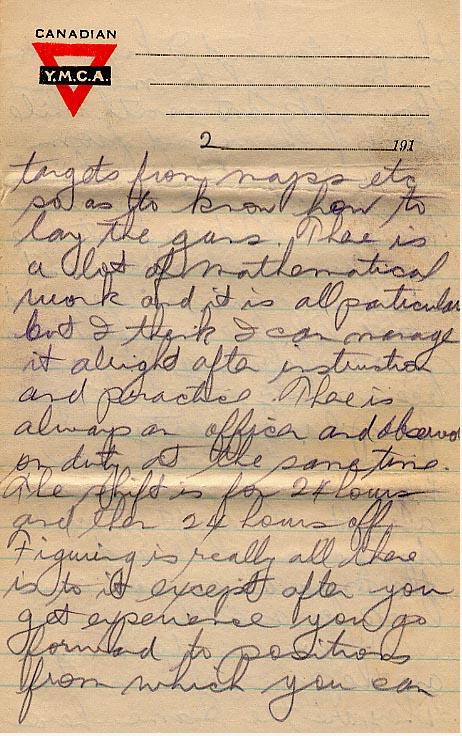 CANADIAN
Y.M.C.A.
2 191
targets from maps etc
so as to know how to
lay the guns. There is
a lot of mathematical
work and it is all particular
but I think I can manage
it alright after instruction
and practice. There is
always an officer and observer
on duty at the same time.
The shift is for 24 hours
and then 24 hours off.
Figuring is really all there
is to it except after you
get experience you go
forward to positions
from which you can